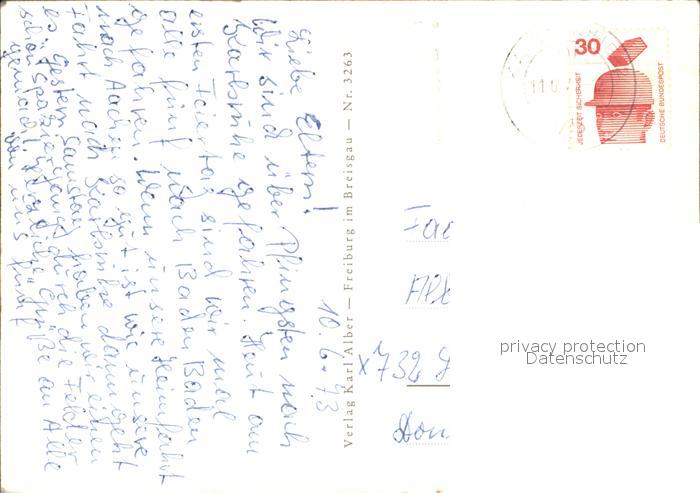 10.6.73
Liebe Eltern!
Wir sind über Pfingsten nach
Karlsruhe gefahren. Heut am
ersten Feiertag sind wir mal
alle fünf nach Baden Baden
gefahren. Wenn unsere Heimfahrt
nach Aachen so gut ist wie unsere
Fahrt nach Karlsruhe dann geht
es. Gestern Samstag haben wir einen
schön Spaziergang durch die Felder
gemacht. Herzliche Grüße an Alle
von uns fünf
Verlag Karl Alber — Freiburg im Breisgau — Nr. 3263
30
JEDERZEIT SICHERHEIT
DEUTSCHE BUNDESPOST
11.6.
Fa
732
Don
privacy protection
Datenschutz